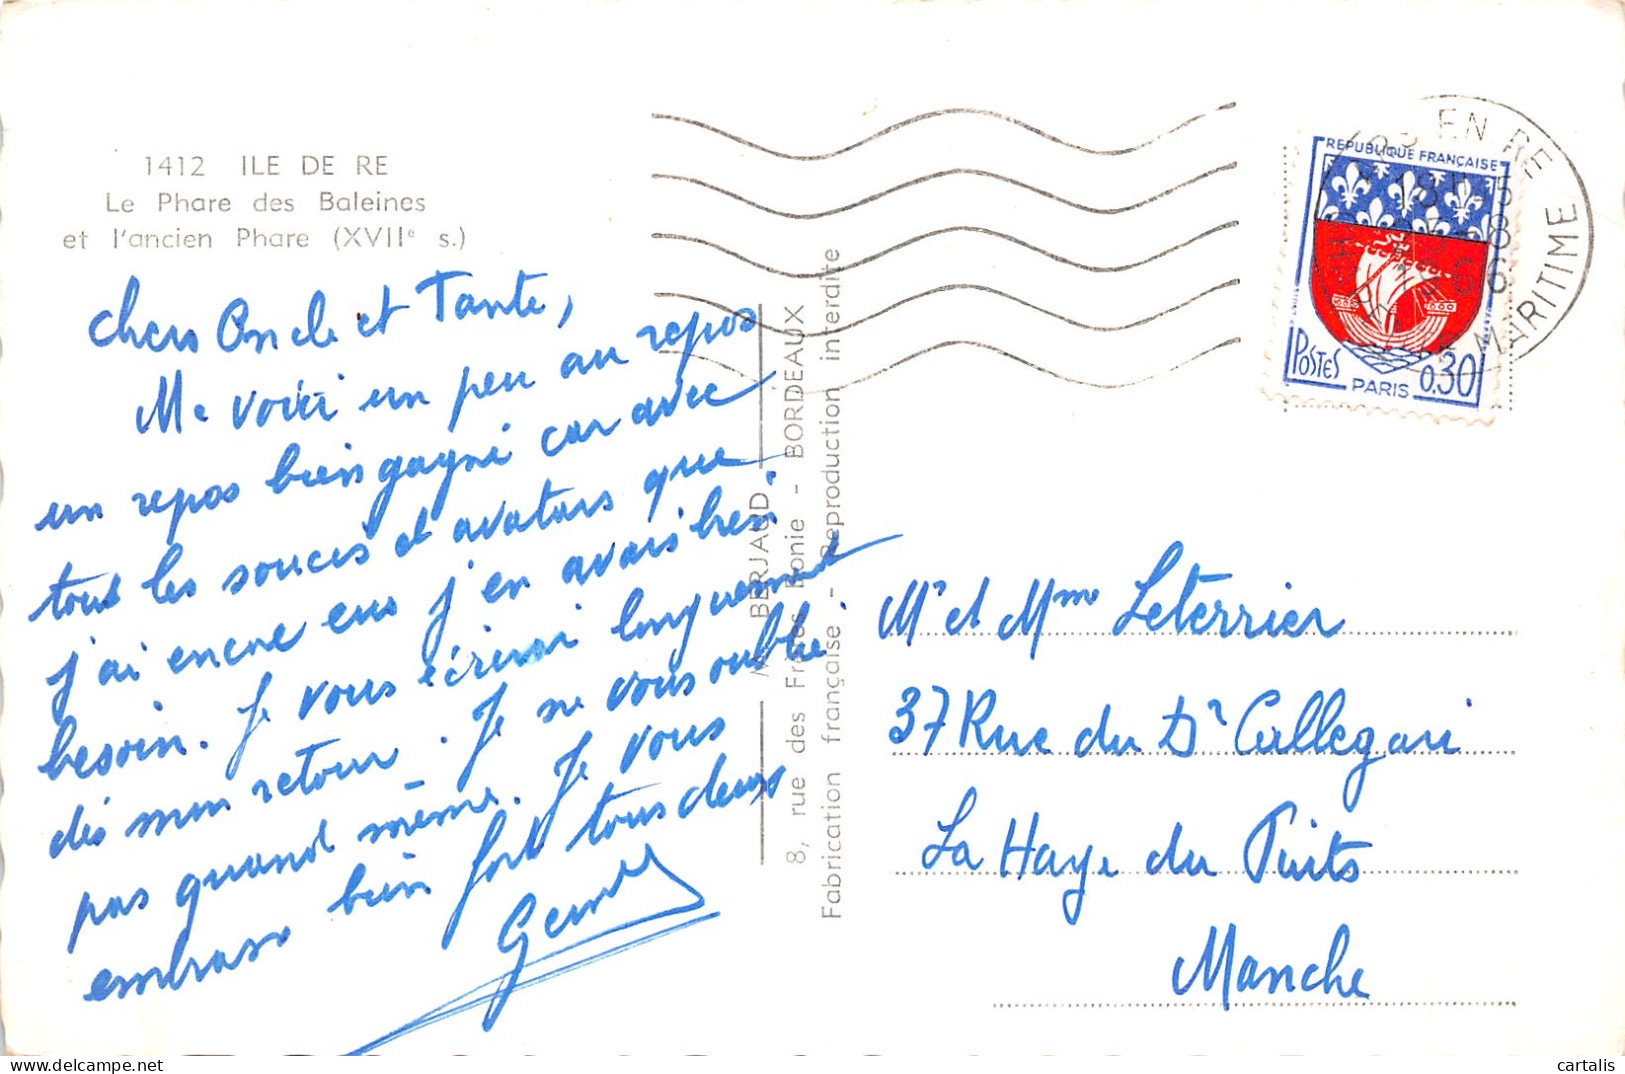 1412 ILE DE RE
Le Phare des Baleines
et l'ancien Phare (XVIIe s.)
chers Oncle et Tante,
Me voici un peu au repos
un repos bien gagné car avec
tous les soucis et avatars que
j'ai encore eus j'en avais bien
besoin. Je vous écrirai longuement
dès mon retour. Je ne vous oublie
pas quand même. Je vous
embrasse bien fort tous deux
BERJAUD
8, rue des Frères Bonie - BORDEAUX
Fabrication française - Reproduction interdite
EN RE
18 H 15
8
1966
MARITIME
REPUBLIQUE FRANÇAISE
POSTES
PARIS
0,30
Mr et Mme Leterrier
37 Rue du Dr Callegari
La Haye du Puits
Manche
cartalis